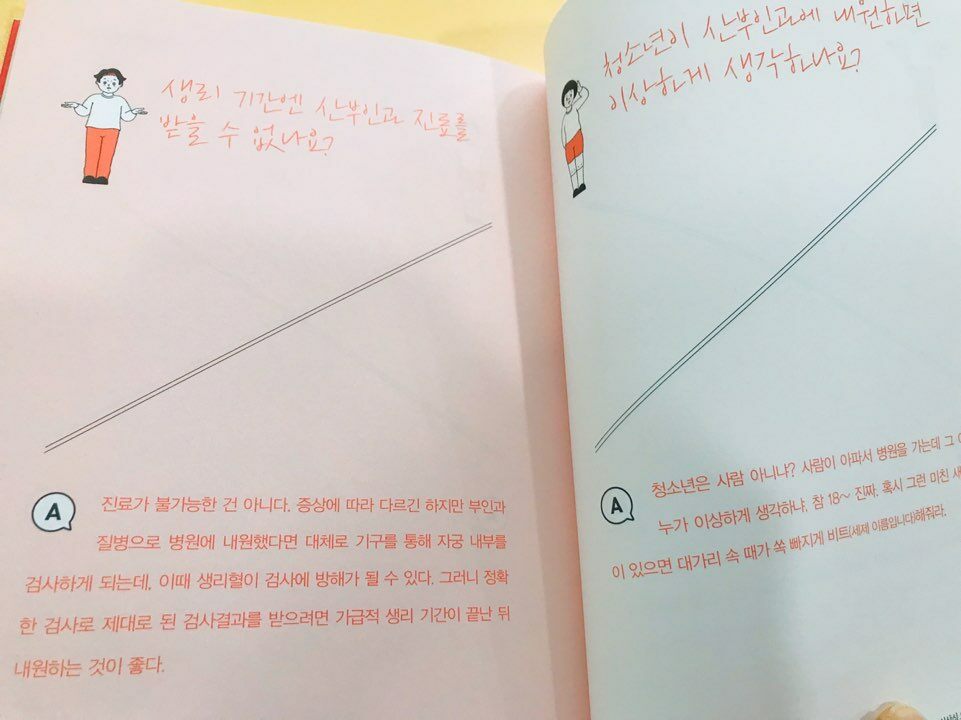 생리 기간엔 산부인과 진료를
받을 수 없나요?
A
진료가 불가능한 건 아니다. 증상에 따라 다르긴 하지만 부인과
질병으로 병원에 내원했다면 대체로 기구를 통해 자궁 내부를
검사하게 되는데, 이때 생리혈이 검사에 방해가 될 수 있다. 그러니 정확
한 검사로 제대로 된 검사결과를 받으려면 가급적 생리 기간이 끝난 뒤
내원하는 것이 좋다.
청소년이 산부인과에 내원하면
이상하게 생각하나요?
A
청소년은 사람 아니냐? 사람이 아파서 병원을 가는데 그
누가 이상하게 생각하냐. 참 18~ 진짜. 혹시 그런 미친 새
이 있으면 대가리 속 때가 쏙 빠지게 비트(세제 이름입니다)해줘라.